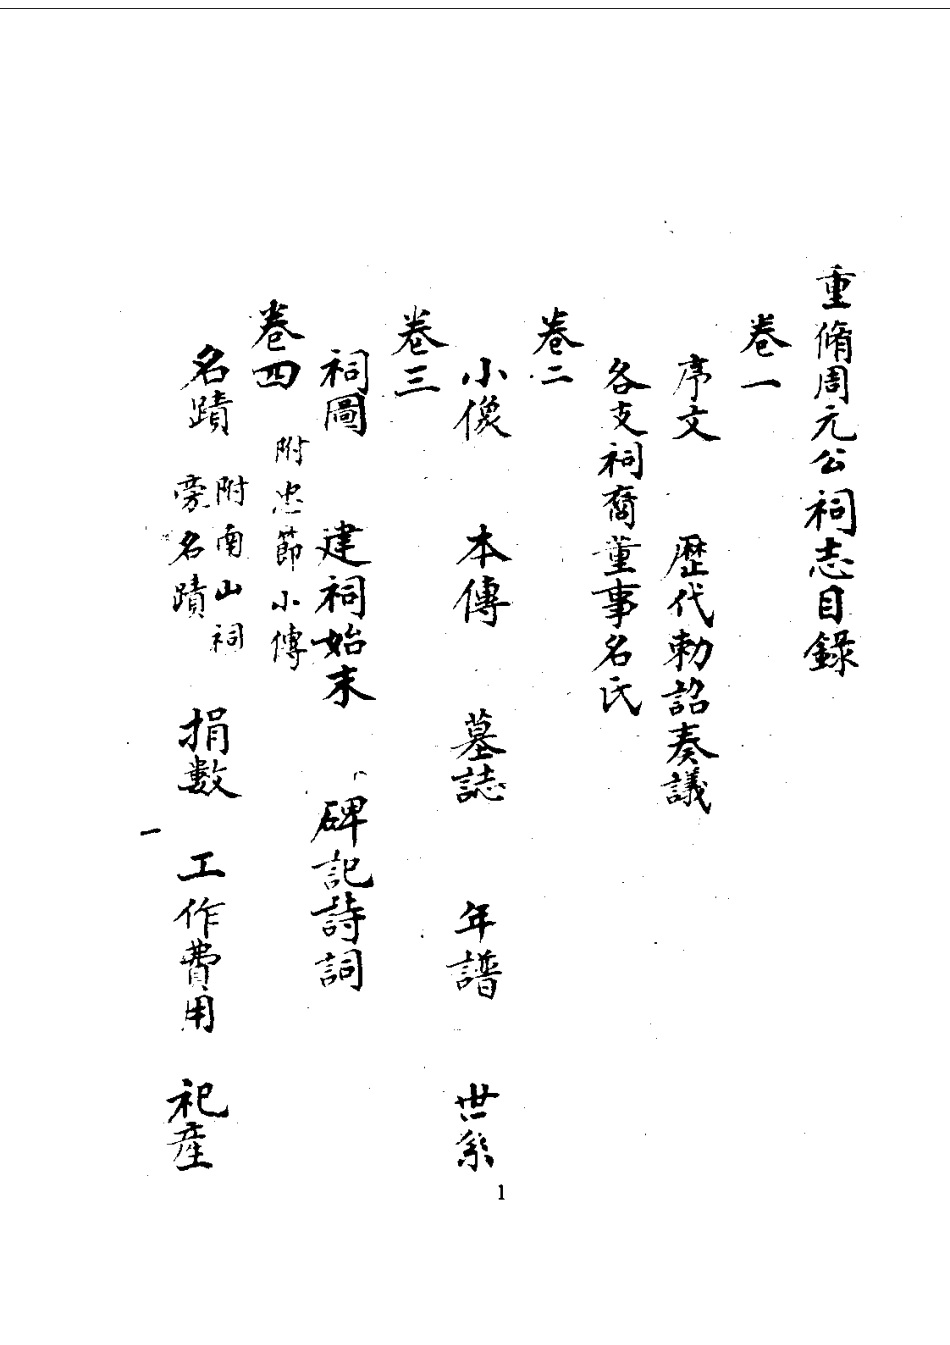 重脩周元公祠志目錄
卷一
序文 歷代勅詔奏議
各支祠裔董事名氏
卷二
小像 本傳 墓誌 年譜 世系
卷三
祠圖 建祠始末 碑記詩詞
卷四 附忠節小傳
名蹟 附南山祠
旁名蹟 捐數 工作費用 祀產
1